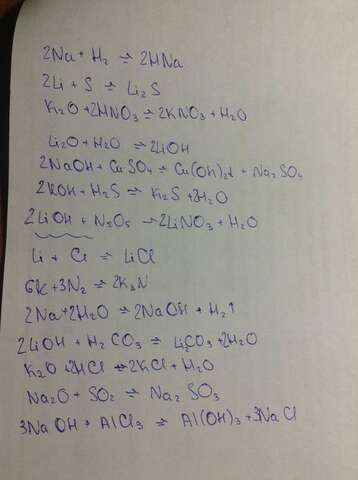 2Na + H₂ ⇌ 2HNa
2Li + S ⇌ Li₂S
K₂O + 2HNO₃ ⇌ 2KNO₃ + H₂O
Li₂O + H₂O ⇌ 2LiOH
2NaOH + CuSO₄ ⇌ Cu(OH)₂↓ + Na₂SO₄
2KOH + H₂S ⇌ K₂S + 2H₂O
2LiOH + N₂O₅ → 2LiNO₃ + H₂O
Li + Cl ⇌ LiCl
6K + 3N₂ ⇌ 2K₃N
2Na + 2H₂O ⇌ 2NaOH + H₂↑
2LiOH + H₂CO₃ ⇌ Li₂CO₃ + 2H₂O
K₂O + 2HCl ⇌ 2KCl + H₂O
Na₂O + SO₂ ⇌ Na₂SO₃
3NaOH + AlCl₃ ⇌ Al(OH)₃ + 3NaCl